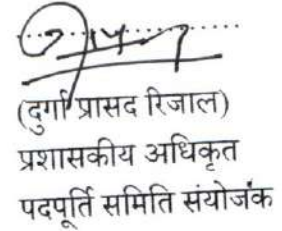 (दुर्गा प्रसाद रिजाल)
प्रशासकीय अधिकृत
पदपूर्ति समिति संयोजक